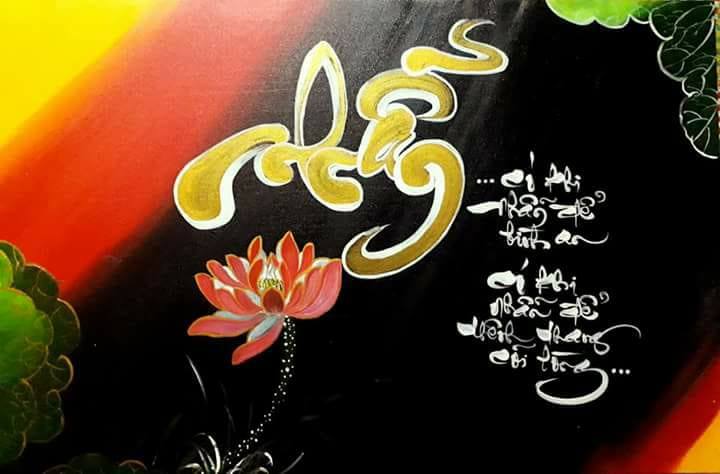 Nhẫn
... Có khi
nhẫn để
bình an
Có khi
nhẫn để
mênh mang
cõi lòng...